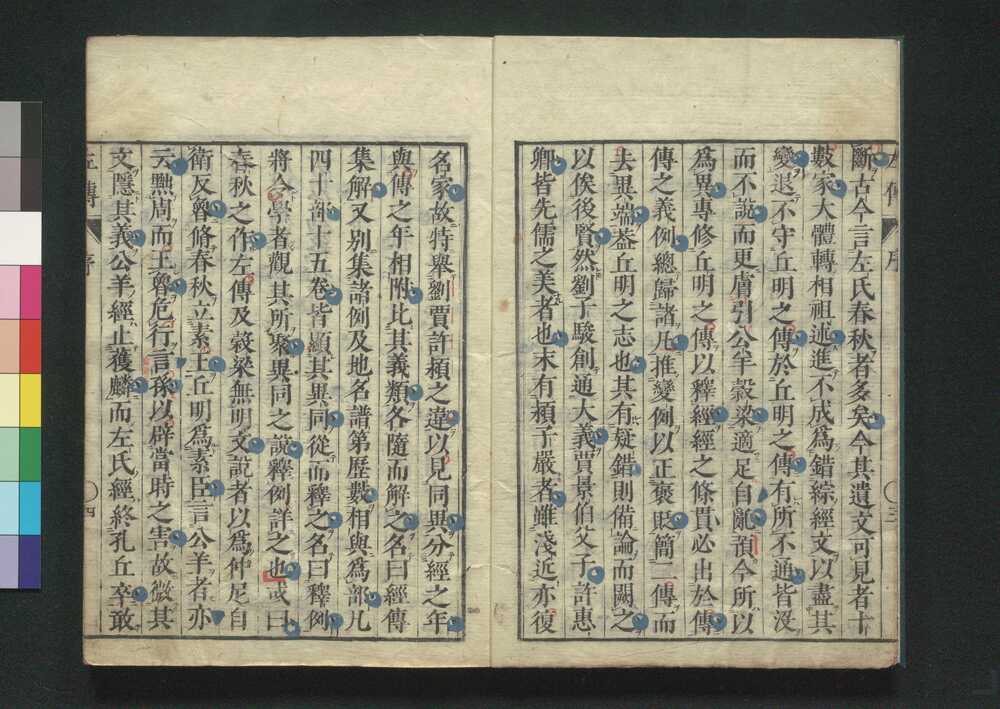 斷古今言左氏春秋者多矣今其遺文可見者十
數家大體轉相祖述進不成爲錯綜經文以盡其
變退不守丘明之傳於丘明之傳有所不通皆沒
而不說而更膚引公羊穀梁適足自亂預今所以
爲異專修丘明之傳以釋經經之條貫必出於傳
傳之義例總歸諸凡推變例以正褒貶簡二傳而
去異端蓋丘明之志也其有疑錯則備論而闕之
以俟後賢然劉子駿創通大義賈景伯父子許惠
卿皆先儒之美者也末有穎子嚴者雖淺近亦復
名家故特舉劉賈許穎之違以見同異分經之年
與傳之年相附比其義類各隨而解之名曰經傳
集解又別集諸例及地名譜第歷數相與爲部凡
四十部十五卷皆顯其異同從而釋之名曰釋例
將令學者觀其所聚異同之說釋例詳之也或曰
春秋之作左傳及穀梁無明文說者以爲仲尼自
衛反魯脩春秋立素王丘明爲素臣言公羊者亦
云黜周而王魯危行言孫以辟當時之害故微其
文隱其義公羊經止獲麟而左氏經終孔丘卒敢